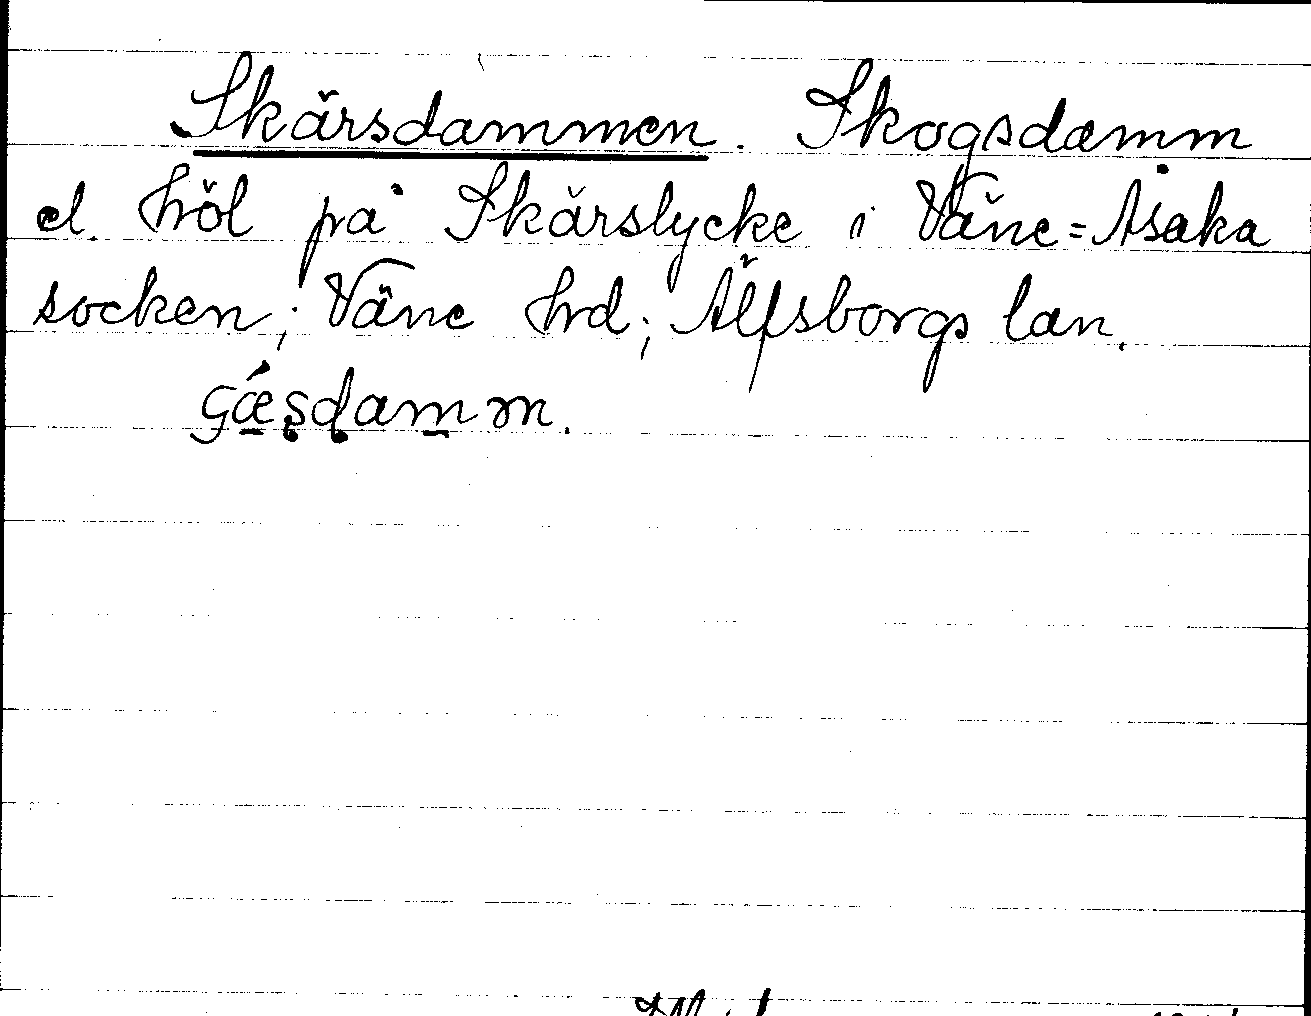 Skärsdammen. Skogsdamm
el. höl på Skärslycke i Väne=Åsaka
socken; Väne hrd; Älfsborgs län.